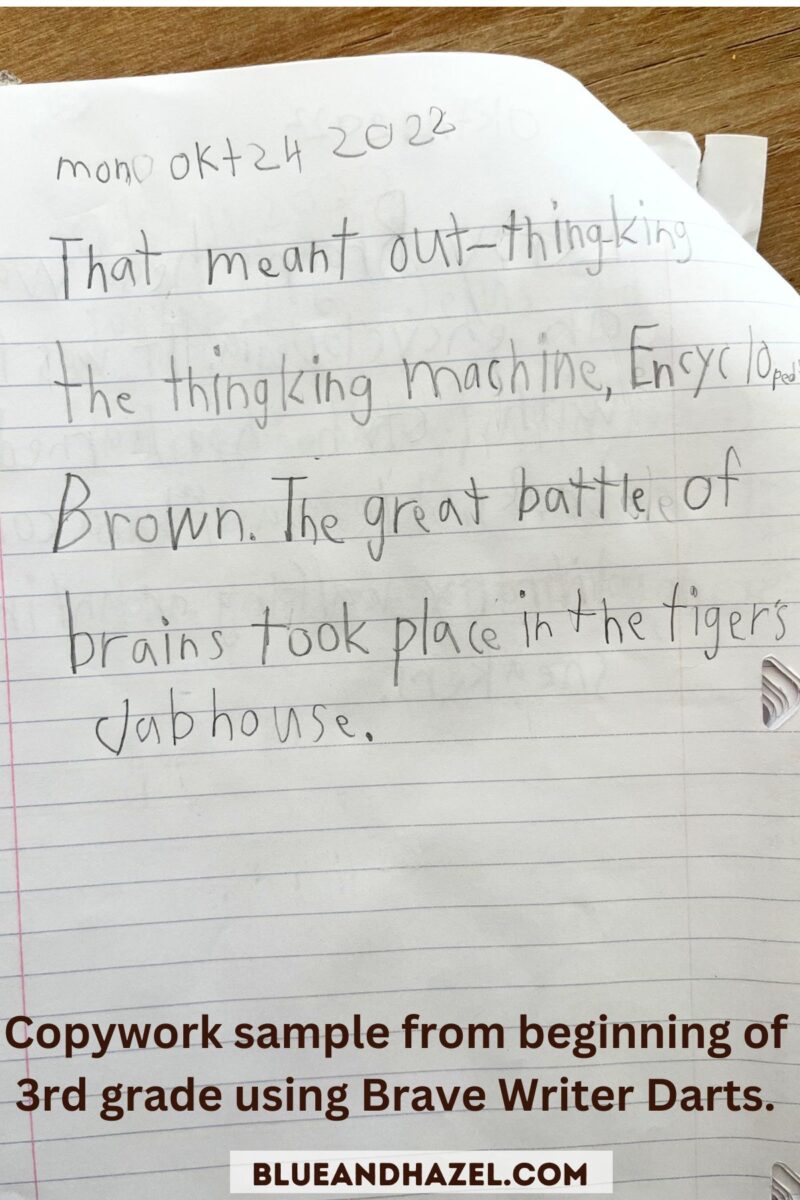 mon okt 24 2022
That meant out-thingking
the thingking machine, Encycloped
Brown. The great battle of
brains took place in the tiger's
clabhouse.
Copywork sample from beginning of
3rd grade using Brave Writer Darts.
BLUEANDHAZEL.COM